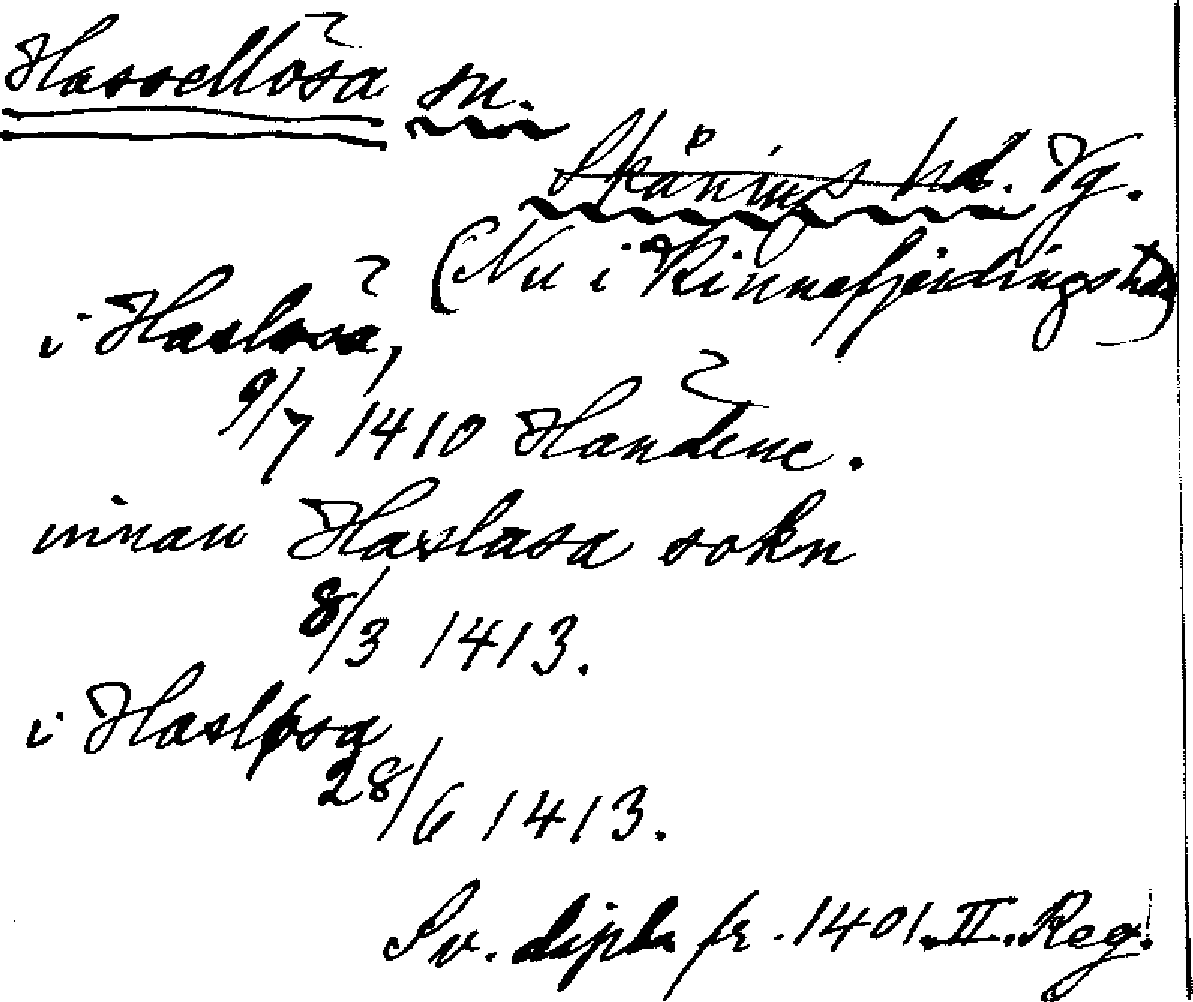 Hassellösa sn.
Skånings hd. Vg.
(Nu i Kinnefjerdings hd)
i Hasløsa,
9/7 1410 Handene.
innan Haslasa sokn
8/3 1413.
i Hasløsa
28/6 1413.
Sv. dipl. fr. 1401. II. Reg.